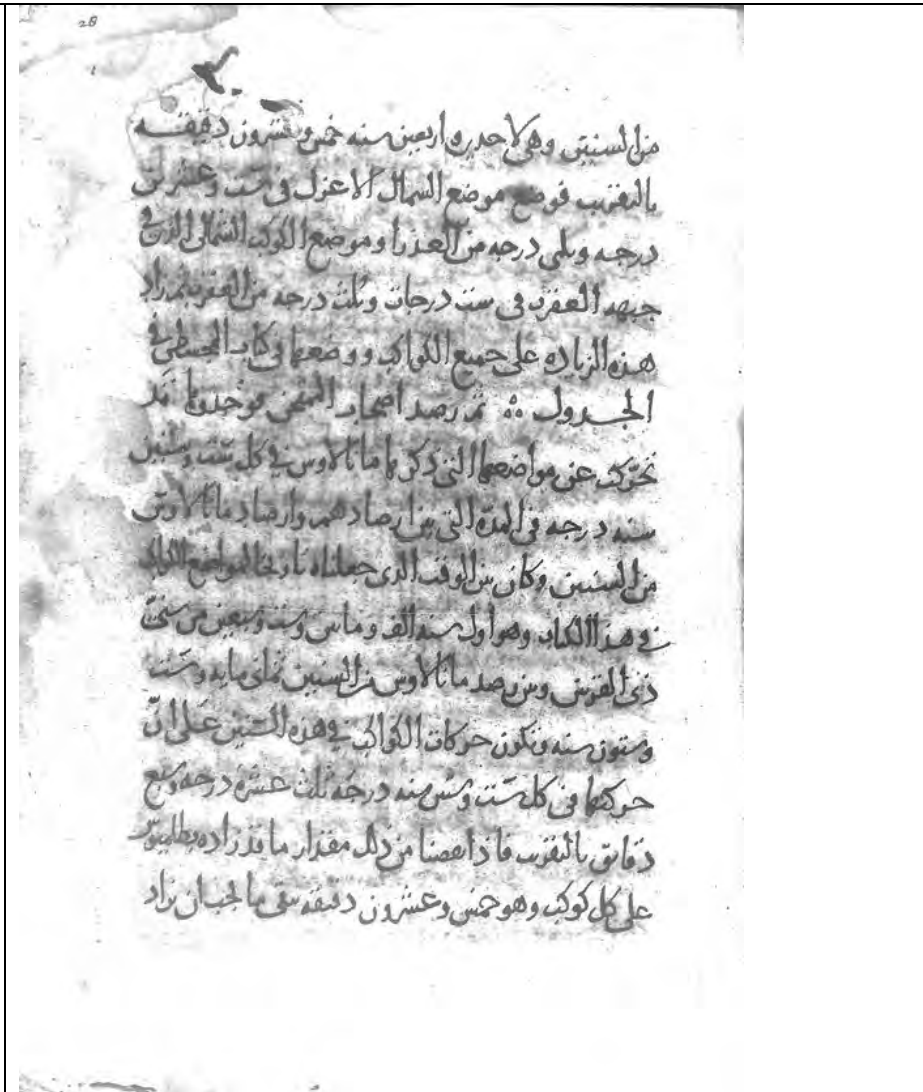 28
من السنين وهي لاحدى واربعين سنه خمس وعشرون دقيقه
بالتقريب فوضع موضع السماك الاعزل في ست وعشرين
درجه وثلثي درجه من العذرا وموضع الكوكب الشمالي الذي في
جبهه العقرب في ست درجات وثلث درجه من العقرب ثم زاد
هذه الزياده على جميع الكواكب ووضعها في كتاب المجسطي في
الجدول ثم رصد اصحاب الممتحن فوجدوها قد
تحركت عن مواضعها التي ذكرها مانالاوس في كل ست وستين
سنه درجه في المده التي بين ارصادهم وارصاد مانالاوس
من السنين وكان بين الوقت الذي جعلناه تاريخا لمواضع الكواكب
في هذا الكتاب وهو اول سنه الف وماتين وست وسبعين من سني
ذي القرنين وبين رصد مانالاوس من السنين ثماني مايه وست
وستون سنه وتكون حركات الكواكب في هذه السنين على ان
حركتها في كل ست وستين سنه درجه ثلث عشره درجه وسبع
دقايق بالتقريب فاذا نقصنا من ذلك مقدار ما قد زاده بطلميوس
على كل كوكب وهو خمس وعشرون دقيقه بقي ما يجب ان يزاد